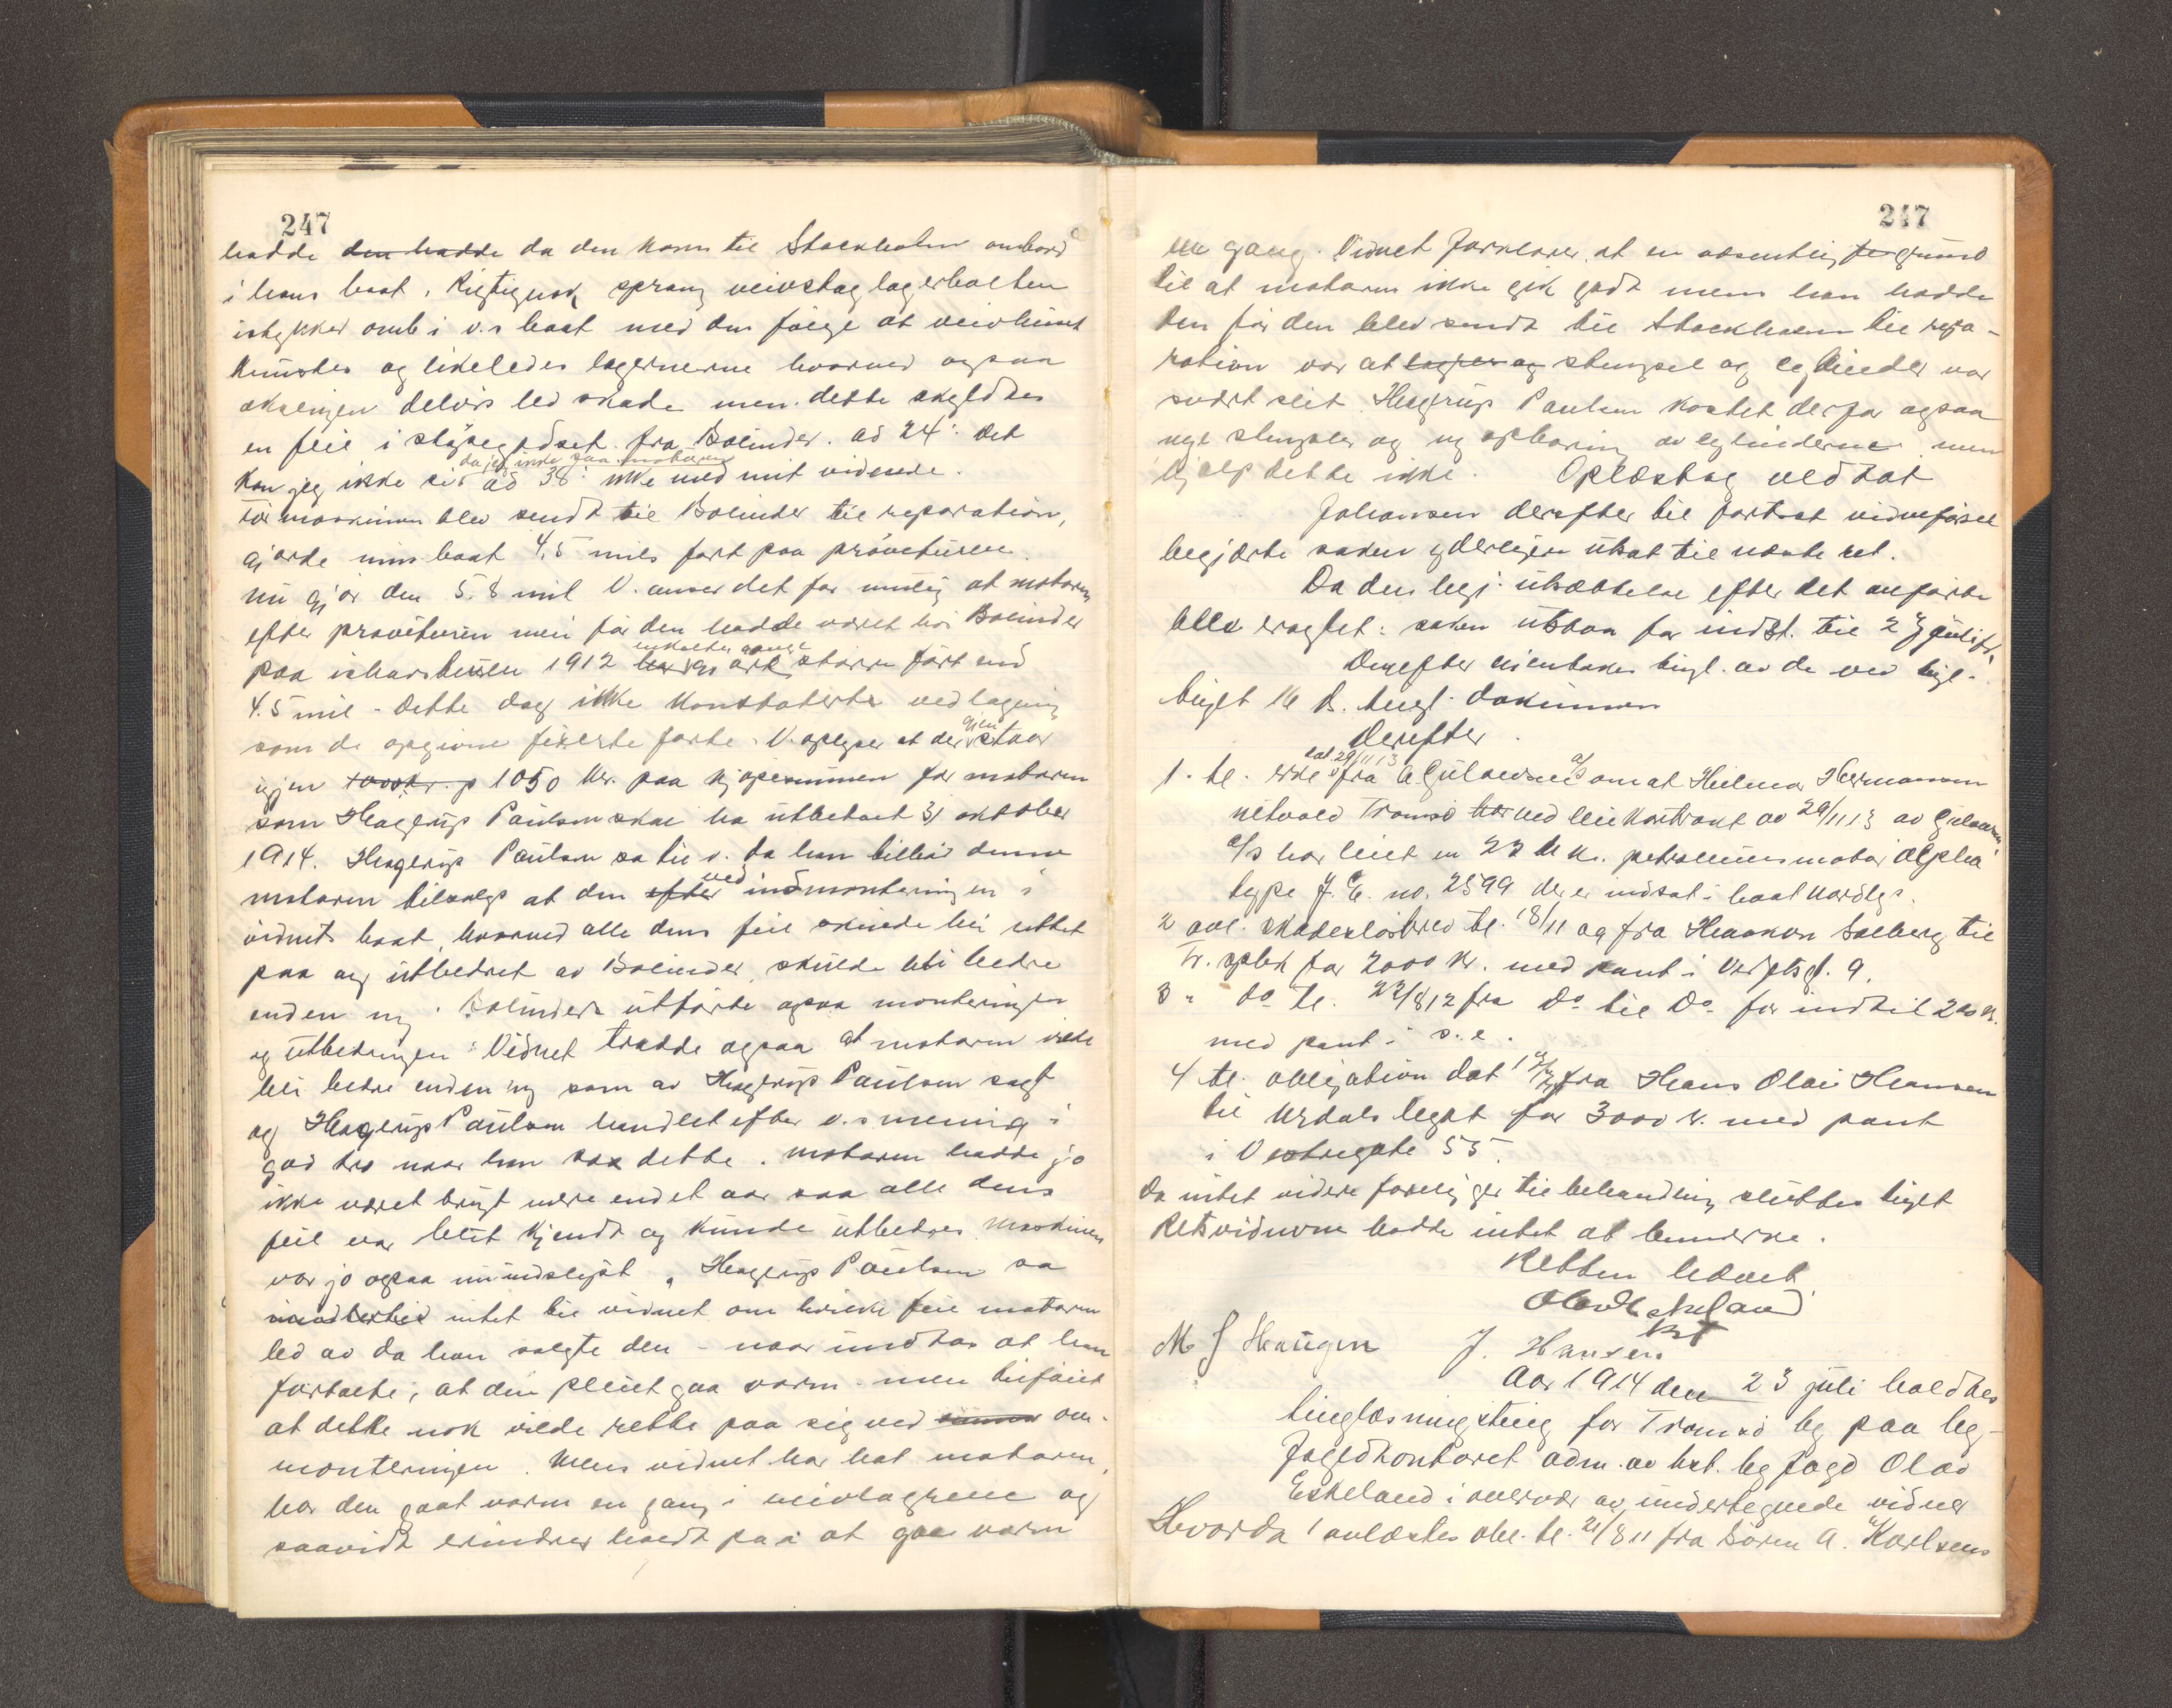 247
hadde den hadde da den kom til Stockholm ombord
i hans baat. Rigtignok sprang veivstaglagerbolten
istykker omb i v.s baat med den følge at veivhuset
knustes og likeledes lagerne hvorved ogsaa
akslingen delvis led skade men dette skyldtes
en feil i støpegodset fra Bolinder. ad 24: det
da jeg ikke saa motoren
kan jeg ikke si ad 38: ikke med mit vidende.
Før maskinen blev sendt til Bolinder til reparation,
gjorde min baat 4.5 mils fart paa prøveturen.
nu gjør den 5.8 mil V. anser det for mulig at motoren
efter prøveturen men før den hadde været hos Bolinder
enkelte gange
paa ishavsturen 1912 har gjort større fart end
4.5 mil - dette dog ikke konstaterte ved logning
som de opgivne fikserte farte. V. oplyser at der gjenstaar
igjen 1000 kr. p 1050 kr. paa kjøpesummen for motoren
som Hagerup Paulsen skal ha utbetalt 31 oktober
1914. Hagerup Paulsen sa til v. da han tilbød denne
motoren tilsalgs at den efter ved indmonteringen i
vidnets baat, hvorved alle dens feil skulde bli rettet
paa og utbedret av Bolinder, skulde bli bedre
enden ny. Bolinders utførte ogsaa monteringen
og utbedringen. Vidnet trodde ogsaa at motoren vilde
bli bedre enden ny som av Hagerup Paulsen sagt
og Hagerup Paulsen handlet efter v.s mening i
god tro naar han sa dette. Motoren hadde jo
ikke været brugt mere end et aar saa alle dens
feil var blit kjendt og kunde utbedres maskinen
var jo ogsaa uundslipt. Hagerup Paulsen sa
imidlertid intet til vidnet om hvilke feil motoren
led av da han solgte den - naar undtas at han
fortalte, at den pleiet gaa varm men tilføiet
at dette nok vilde rette paa sig ved om-
monteringen. Mens vidnet har hat motoren,
har den gaat varm en gang i veivlagrene og
saavidt erindres holdt paa at gaa varm
247
en gang. Vidnet forklarer, at en væsentlig grund
til at motoren ikke gik godt mens han hadde
den før den blev sendt til Stockholm til repa-
ration var at lagrer og stempel og cylinder var
svært slit. Hagerup Paulsen kostet derfor ogsaa
nye stempler og ny opboring av cylinderne men
hjalp dette ikke. Oplæst og vedtat
Johansen derefter til fortsat vidneførsel
begjærte saken yderligere utsat til næste ret.
Da den begj. utsættelse efter det anførte
blev eragtet: saken utstaar for indst. til 2
Derefter
Derefter
dat 29/11 13
1. tl. erkl fra A Gulowsen a/s om at Hilmar Hermansen
Tromsø har ved leiekontrakt av 29/11 13 av Gulowsen
a/s har leiet en 22 hk. petroleumsmotor Alpha
type J. E. no. 2599 der er indsat i baat Nordlys.
2 avl. skadesløsbrev tl. 18/11 09 fra Haakon Solberg til
Tr. spbk for 2000 kr. med pant i g. 9.
3 " do tl. 23/8 12 fra do til do for indtil 200 kr.
med pant i s. e.
4 tl. obligation dat fra Hans Olai Hansen
til legat for 3000 kr. med pant
i Vestregate 55.
Da intet videre foreligger til behandling sluttes tinget
Retsvidnerne hadde intet at bemerke.
Retten hævet
Olav Eskeland
kst
M J Haugen J. Hansen
Aar 1914 den 23 juli holdtes
tinglæsningsting for Tromsø by paa by-
fogedkontoret adm. av kst. byfogd Olav
Eskeland i overvær av undertegnede vidner
Hvorda 1 avlæstes obl. tl. 21/8 11 fra Søren A. Karlsens